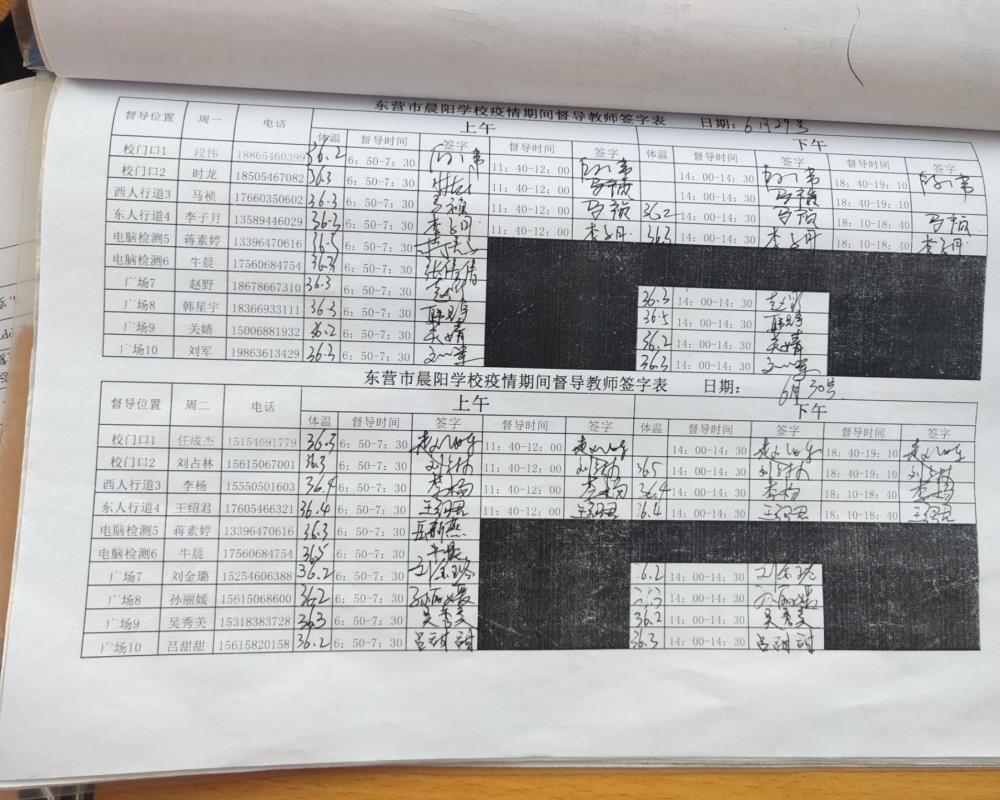 东营市晨阳学校疫情期间督导教师签字表 日期：6月29号
督导位置 周一 电话 上午 下午
体温 督导时间 签字 督导时间 签字 体温 督导时间 签字 督导时间 签字
校门口1 段伟 18865460399 36.2 6：50-7：30 11：40-12：00 14：00-14：30 18：40-19：10
校门口2 时龙 18505467082 36.3 6：50-7：30 时龙 11：40-12：00 马祯 14：00-14：30 马祯 18：40-19：10
西人行道3 马祯 17660350602 36.3 6：50-7：30 马祯 11：40-12：00 马祯 36.2 14：00-14：30 马祯 18：10-18：40 马祯
东人行道4 李子月 13589446029 36.2 6：50-7：30 李子月 11：40-12：00 李子月 36.3 14：00-14：30 李子月 18：10-18：40 李子月
电脑检测5 蒋素婷 13396470616 36.5 6：50-7：30
电脑检测6 牛晨 17560684754 36.3 6：50-7：30 张倩倩
广场7 赵野 18678667310 36.3 6：50-7：30 赵野 36.3 14：00-14：30 赵野
广场8 韩星宇 18366933111 36.3 6：50-7：30 36.5 14：00-14：30
广场9 关婧 15006881932 36.2 6：50-7：30 关婧 36.2 14：00-14：30 关婧
广场10 刘军 19863613429 36.3 6：50-7：30 刘军 36.3 14：00-14：30 刘军
东营市晨阳学校疫情期间督导教师签字表 日期：6月30号
督导位置 周二 电话 上午 下午
体温 督导时间 签字 督导时间 签字 体温 督导时间 签字 督导时间 签字
校门口1 任成杰 15154691779 36.3 6：50-7：30 11：40-12：00 14：00-14：30 18：40-19：10
校门口2 刘占林 15615067001 36.3 6：50-7：30 刘占林 11：40-12：00 刘占林 36.5 14：00-14：30 刘占林 18：40-19：10 刘占林
西人行道3 李杨 15550501603 36.4 6：50-7：30 李杨 11：40-12：00 李杨 36.4 14：00-14：30 李杨 18：10-18：40 李杨
东人行道4 王绍君 17605466321 36.4 6：50-7：30 王绍君 11：40-12：00 王绍君 36.4 14：00-14：30 王绍君 18：10-18：40 王绍君
电脑检测5 蒋素婷 13396470616 36.3 6：50-7：30
电脑检测6 牛晨 17560684754 36.5 6：50-7：30 牛晨
广场7 刘金璐 15254606388 36.2 6：50-7：30 刘金璐 36.2 14：00-14：30 刘金璐
广场8 孙丽媛 15615068600 36.2 6：50-7：30 孙丽媛 14：00-14：30 孙丽媛
广场9 吴秀美 15318383728 36.3 6：50-7：30 吴秀美 36.2 14：00-14：30 吴秀美
广场10 吕甜甜 15615820158 36.2 6：50-7：30 吕甜甜 36.3 14：00-14：30 吕甜甜